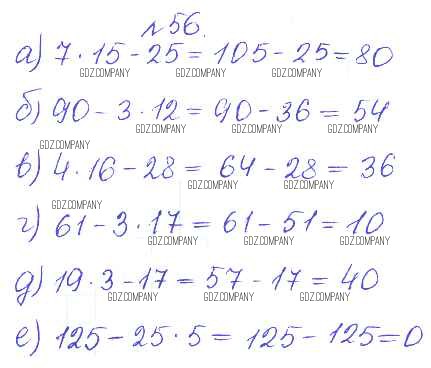 №56.
а) 7 · 15 - 25 = 105 - 25 = 80
GDZ.COMPANY GDZ.COMPANY GDZ.COMPANY
б) 90 - 3 · 12 = 90 - 36 = 54
GDZ.COMPANY GDZ.COMPANY GDZ.COMPANY
GDZ.COMPANY
в) 4 · 16 - 28 = 64 - 28 = 36
GDZ.COMPANY GDZ.COMPANY
GDZ.COMPANY
г) 61 - 3 · 17 = 61 - 51 = 10
GDZ.COMPANY GDZ.COMPANY GDZ.COMPANY
д) 19 · 3 - 17 = 57 - 17 = 40
GDZ.COMPANY GDZ.COMPANY GDZ.COMPANY
е) 125 - 25 · 5 = 125 - 125 = 0